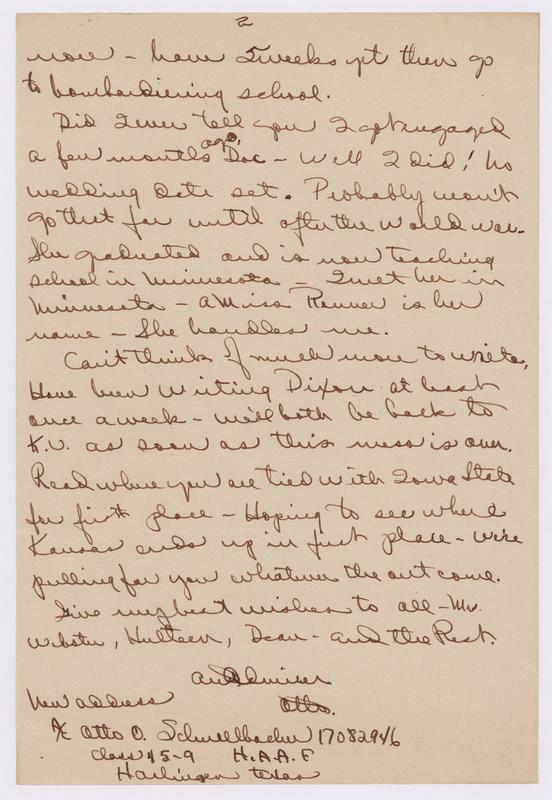 2
now - have 5 weeks yet then go
to bombardiering school.
Did I ever tell you I got engaged
a few months ago, Doc - Well I did! No
wedding date set. Probably won't
go thst far until after the World War.
She graduated and is now teaching
school in Minnesota - I met her in
Minnesota - A Miss Renner is her
name - She handles me.
Can't think of much more to write,
Have been writing Dixon at least
once a week - we'll both be back to
K.U. as soon as this mess is over.
Read where you are tied with Iowa State
for first place - Hoping to see where
Kansas ends up in first place - We're
pulling for you whatever the outcome.
Give my best wishes to all - Mr.
Webster, Hulteen, Dean - and the Rest.
An Admirer
Otto.
New address
A/c Otto O. Schnellbacher 17082946
Class 45-9 H.A.A.F
Harlingen Texas